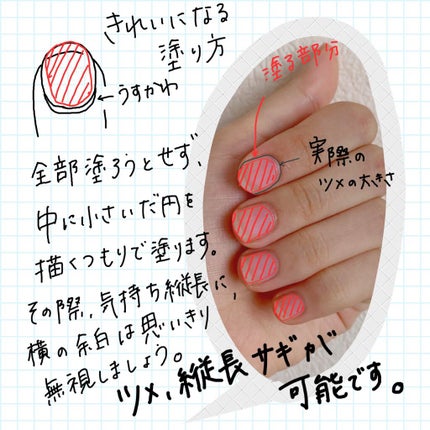 きれいになる
塗り方
うすかわ
塗る部分
実際の
ツメの大きさ
全部塗ろうとせず、
中に小さいだ円を
描くつもりで塗ります。
その際、気持ち縦長に、
横の余白は思いきり
無視しましょう。
ツメ、縦長サギが
可能です。